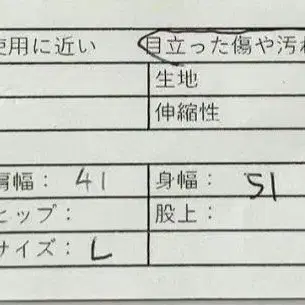 使用に近い 目立った傷や汚れ
生地
伸縮性
肩幅： 41 身幅： 51
ヒップ： 股上：
サイズ： L